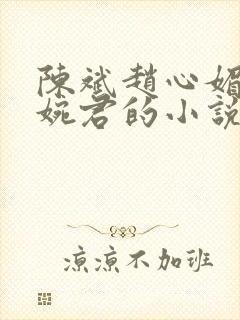 陳斌趙心媚
婉君的小說
涼涼不加班